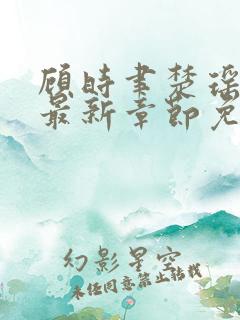 顾时聿楚瑶
最新章节免
幻影星空
未经同意禁止转载